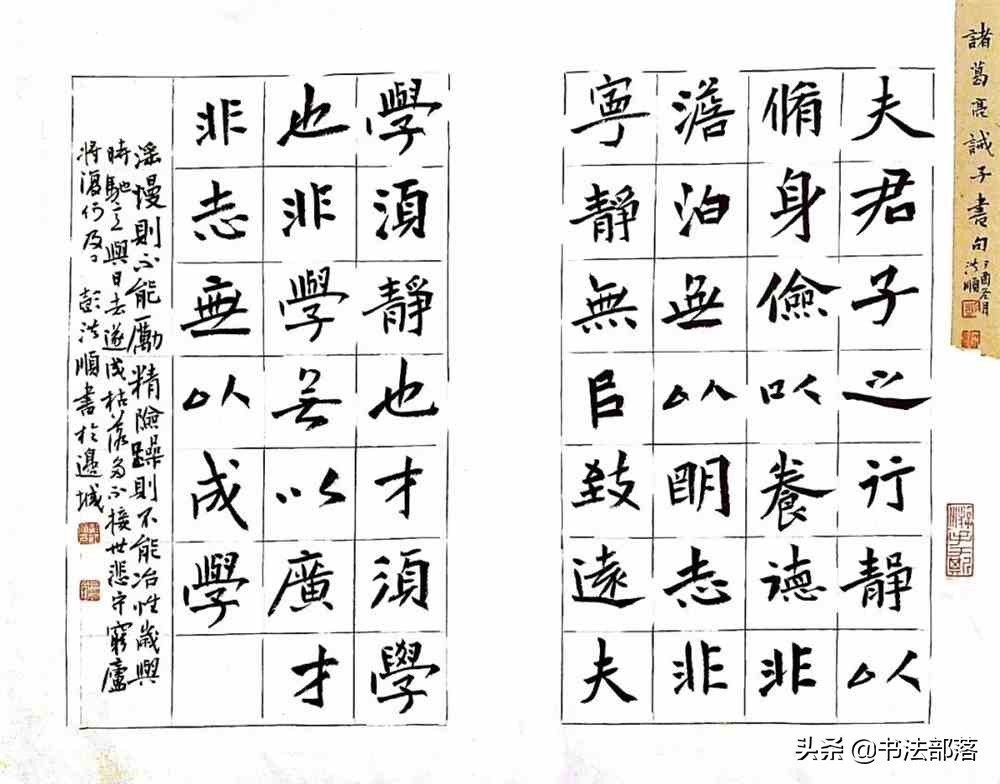 諸葛亮誡子書句
丁酉冬月
洪順
夫君子之行靜以
脩身儉以養德非
澹泊無以明志非
寧靜無㠯致遠夫
學須靜也才須學
也非學無以廣才
非志無以成學
淫慢則不能勵精險躁則不能冶性歲與
時馳意與日去遂成枯落多不接世悲守窮廬
將復何及 彭洪順書於邊城
头条 @书法部落